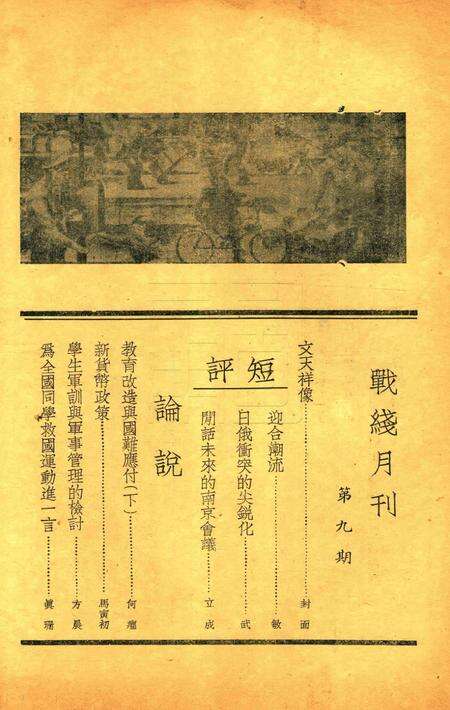 戰綫月刊
第九期
文天祥像……封面
短評
迎合潮流……敏
日俄衝突的尖銳化……武
閒話未來的南京會議……立成
論說
教育改造與國難應付(下)……何
新貨幣政策……馬寅初
學生軍訓與軍事管理的檢討……方昊
爲全國同學救國運動進一言……眞珊